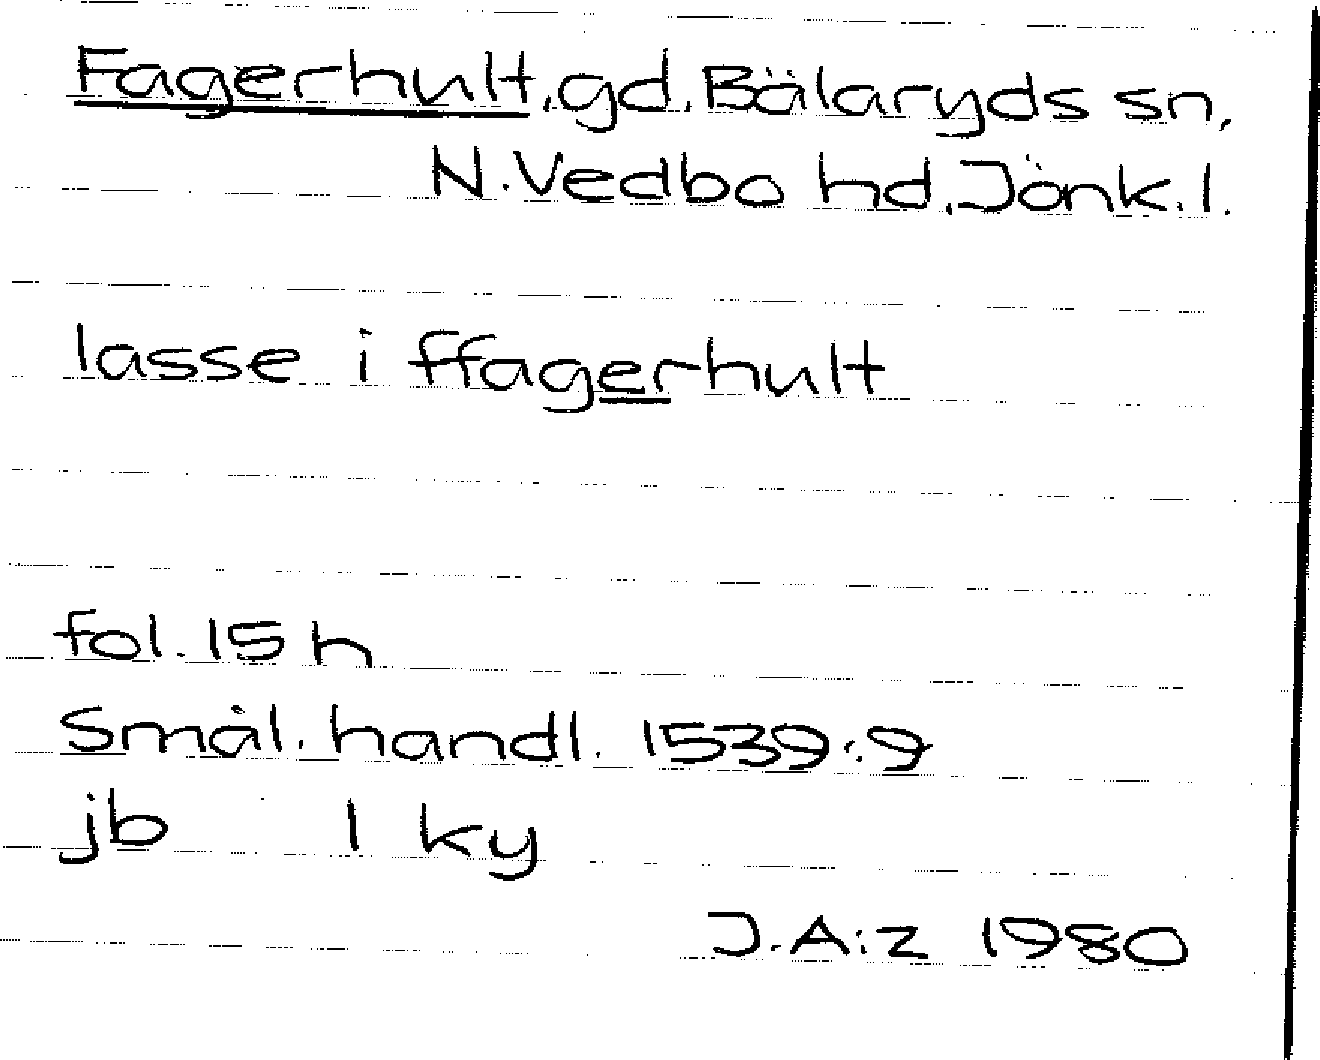 Fagerhult, gd, Bälaryds sn,
N. Vedbo hd, Jönk. l.
lasse i ffagerhult
fol. 15 h
Smål. handl. 1539:9
jb 1 ky
J.A:z 1980